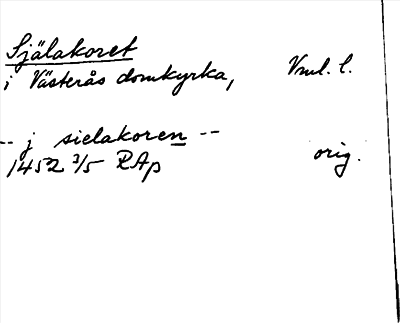 Själakoret
i Västerås domkyrka, Vml. l.
-- j sielakoren --
1452 3/5 RAp orig.